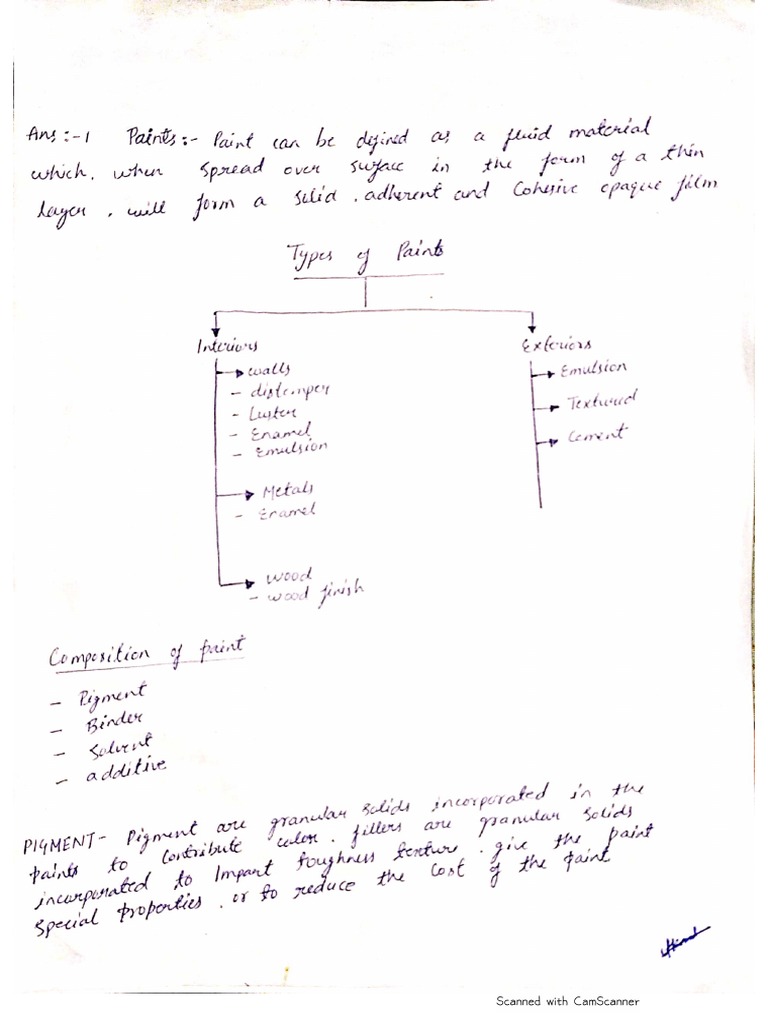 Ans :-1 Paints :- Paint can be defined as a fluid material
which, when spread over surface in the form of a thin
layer, will form a solid, adherent and Cohesive opaque film
Types of Paints
Interiors
Exteriors
walls
Emulsion
- distemper
- Luster
Textured
- Enamel
Cement
- Emulsion
Metals
- Enamel
wood
- wood finish
Composition of paint
- Pigment
- Binder
- Solvent
- additive
PIGMENT- Pigment are granular solids incorporated in the
paints to contribute color. fillers are granular solids
incorporated to Impart toughness texture, give the paint
special properties, or to reduce the cost of the paint
Scanned with CamScanner